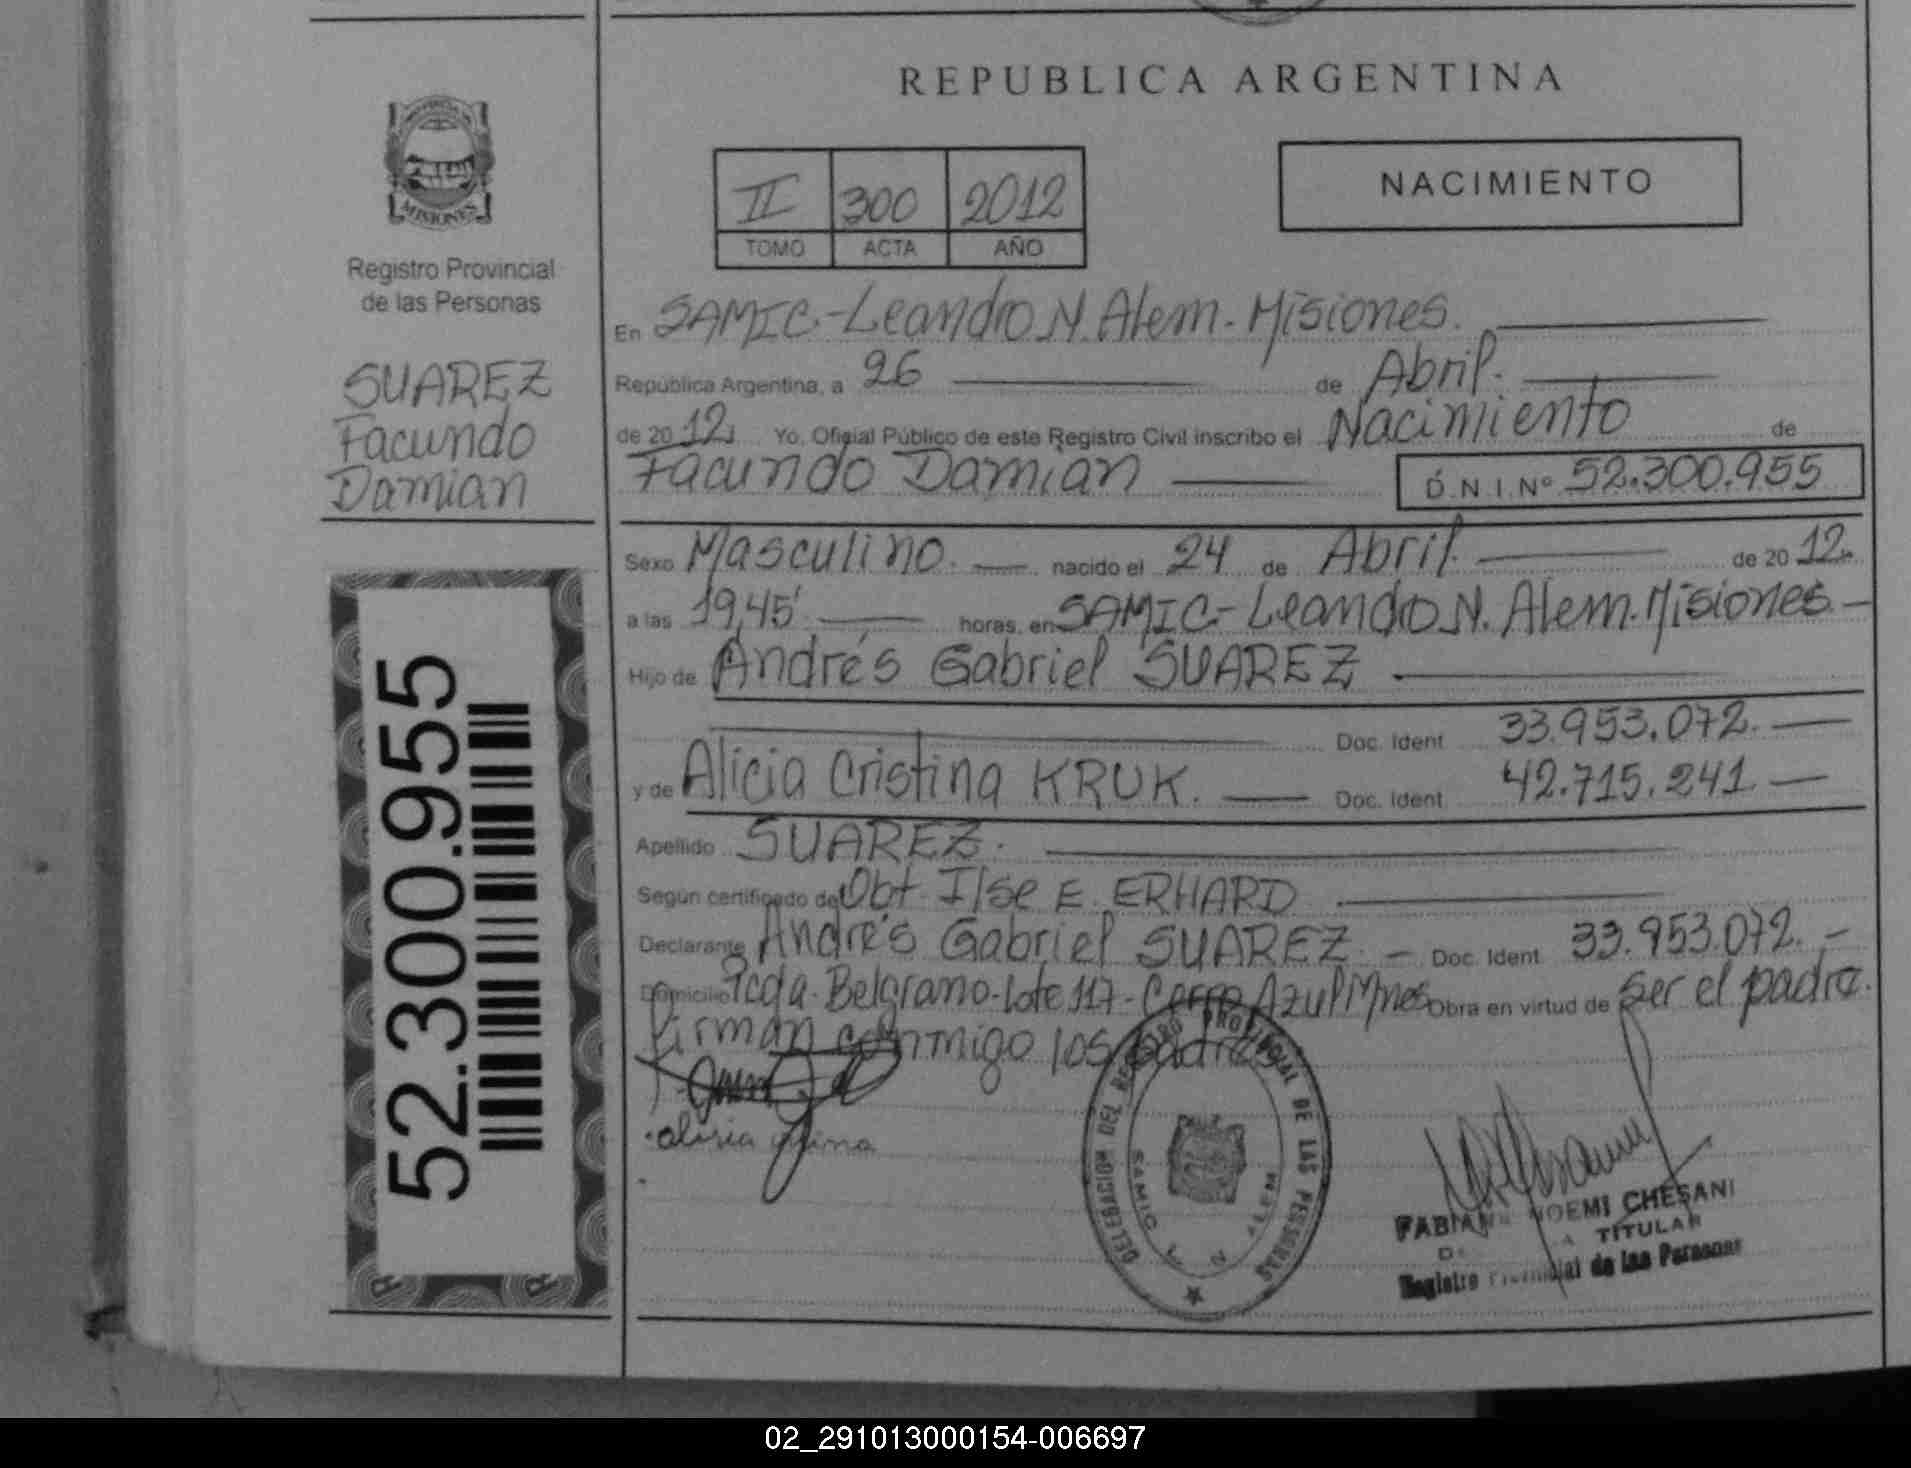 REPUBLICA ARGENTINA
MISIONES
Registro Provincial
de las Personas
II 300 2012
TOMO ACTA AÑO
NACIMIENTO
SUAREZ
Facundo
Damian
52.300.955
En SAMIC-Leandro N. Alem-Misiones.
República Argentina, a 26 de Abril.
de 2012 Yo, Oficial Público de este Registro Civil inscribo el Nacimiento de
Facundo Damian D.N.I.Nº 52.300.955
Sexo Masculino. nacido el 24 de Abril. de 2012.
a las 19,45' horas, en SAMIC-Leandro N. Alem.Misiones.
Hijo de Andrés Gabriel SUAREZ
Doc. Ident 33.953.072.
y de Alicia Cristina KRUK. Doc. Ident 42.715.241
Apellido SUAREZ.
Según certificado de Obt. Ilse E. ERHARD
Declarante Andrés Gabriel SUAREZ. Doc. Ident 33.953.072.
Domicilio Pcda. Belgrano-Lote 117-Cerro Azul Mnes Obra en virtud de ser el padre.
Firman conmigo los padres
alisia
DELEGACION DEL REGISTRO PROVINCIAL DE LAS PERSONAS
SAMIC L N ALEM
FABIANA NOEMI CHESANI
TITULAR
Registro Provincial de las Personas
02_291013000154-006697